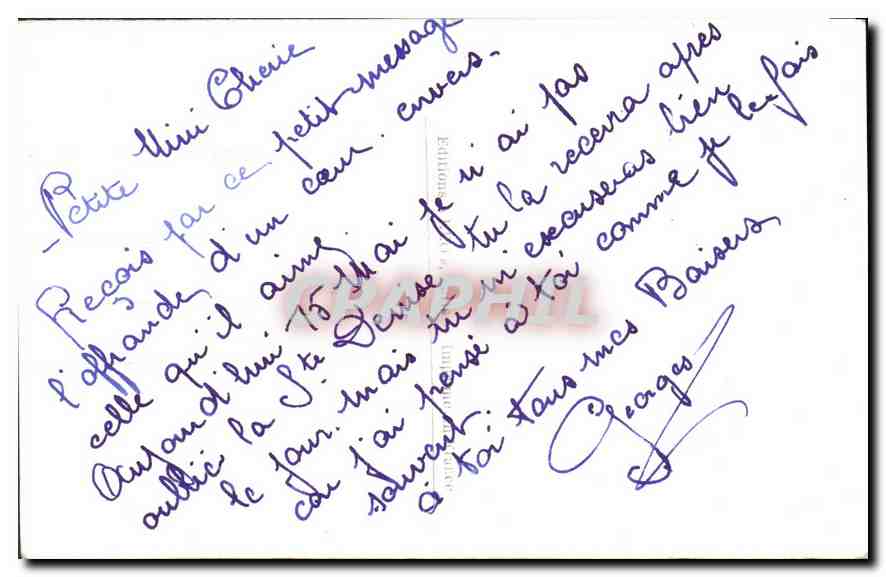 Petite Mini Cherie
Reçois par ce petit message
l'offrande d'un cœur envers
celle qu'il aime.
Aujourd'hui 15 Mai je n'ai pas
oublié la Ste Denise tu la recevra apres
le jour mais tu m'excuseras bien
car j'ai pensé a toi comme je le fais
souvent.
à toi tous mes Baisers
Georges
Editions
CRAPHIL